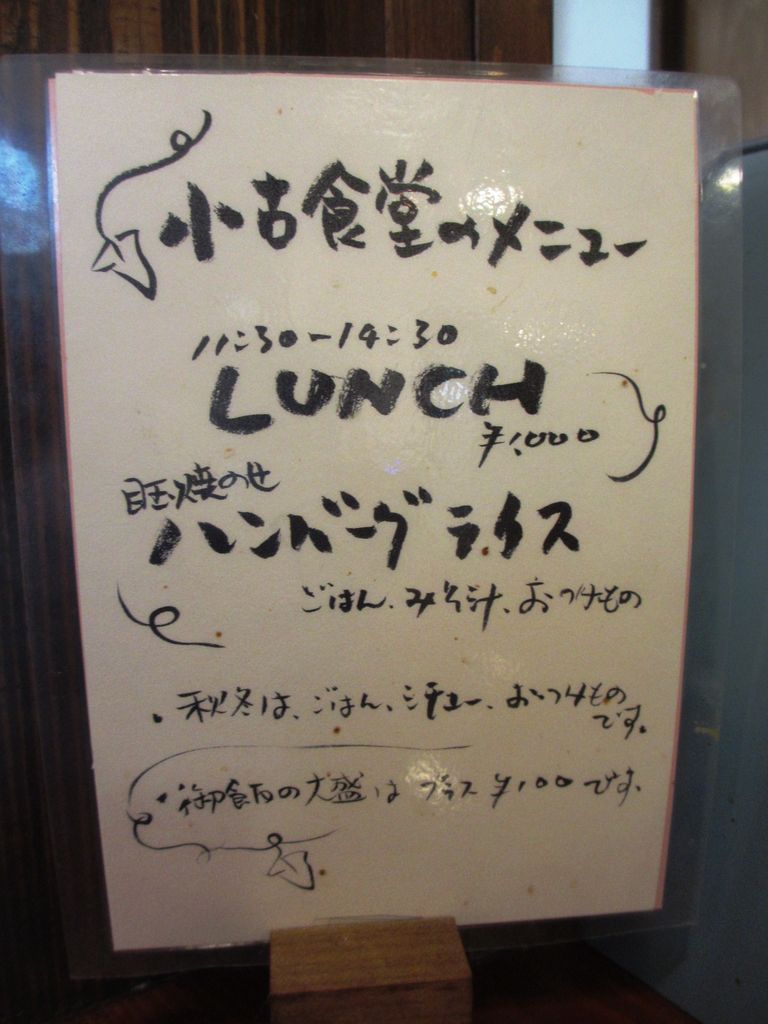 小古食堂のメニュー
11:30-14:30
LUNCH
¥1,000
目玉焼のせ
ハンバーグライス
ごはん、みそ汁、おつけもの
・秋冬は、ごはん、シチュー、おつけもの
です。
・御飯の大盛はプラス¥100です。